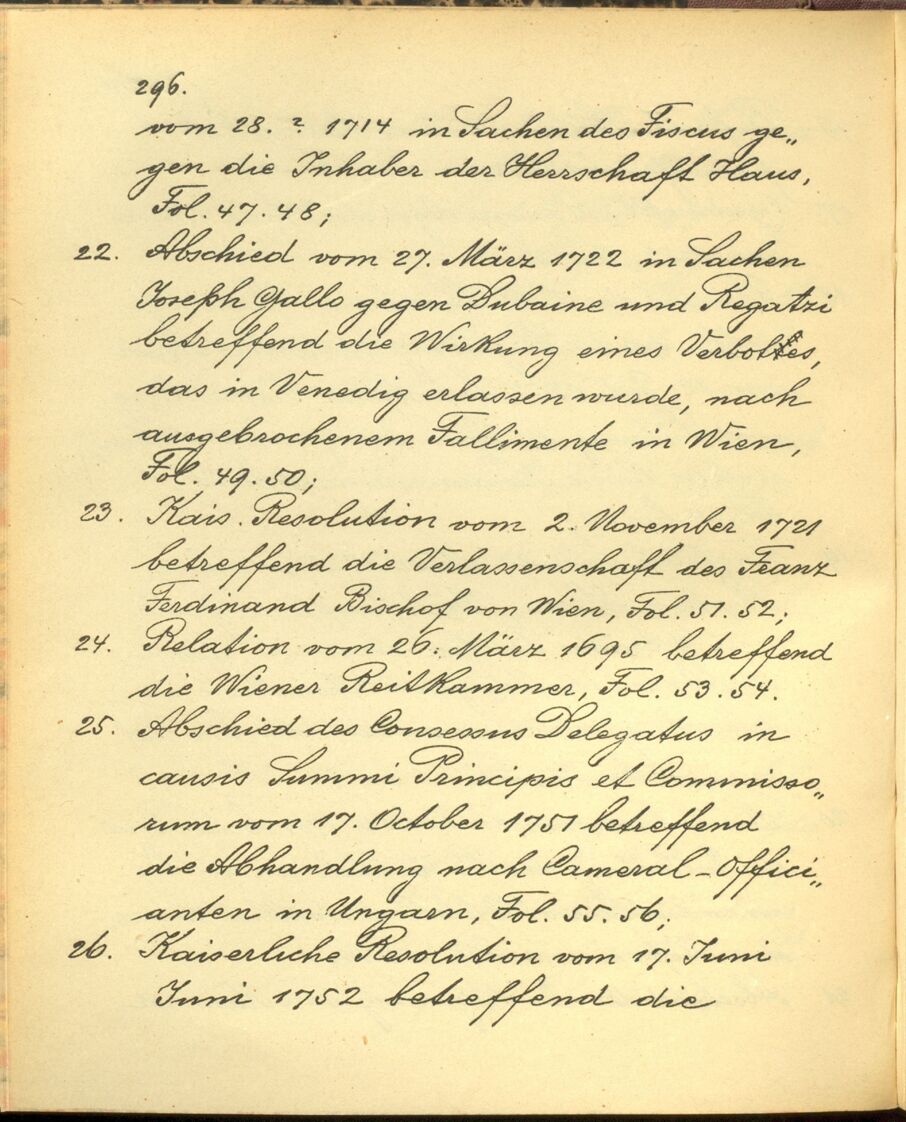 296.
vom 28. ? 1714 in Sachen des Fiscus ge„
gen die Inhaber der Herrschaft Haus,
Fol. 47. 48;
22. Abschied vom 27. März 1722 in Sachen
Joseph Gallo gegen Dubaine und Regatzi
betreffend die Wirkung eines Verbotes,
das in Venedig erlassen wurde, nach
ausgebrochenem Fallimente in Wien,
Fol. 49. 50;
23. Kais. Resolution vom 2. November 1721
betreffend die Verlassenschaft des Franz
Ferdinand Bischof von Wien, Fol. 51. 52;
24. Relation vom 26. März 1695 betreffend
die Wiener Reitkammer, Fol. 53. 54.
25. Abschied des Consessus Delegatus in
causis Summi Principis et Commisso„
rum vom 17. October 1751 betreffend
die Abhandlung nach Cameral-Offici„
anten in Ungarn, Fol. 55. 56;
26. Kaiserliche Resolution vom 17. Juni
Juni 1752 betreffend die